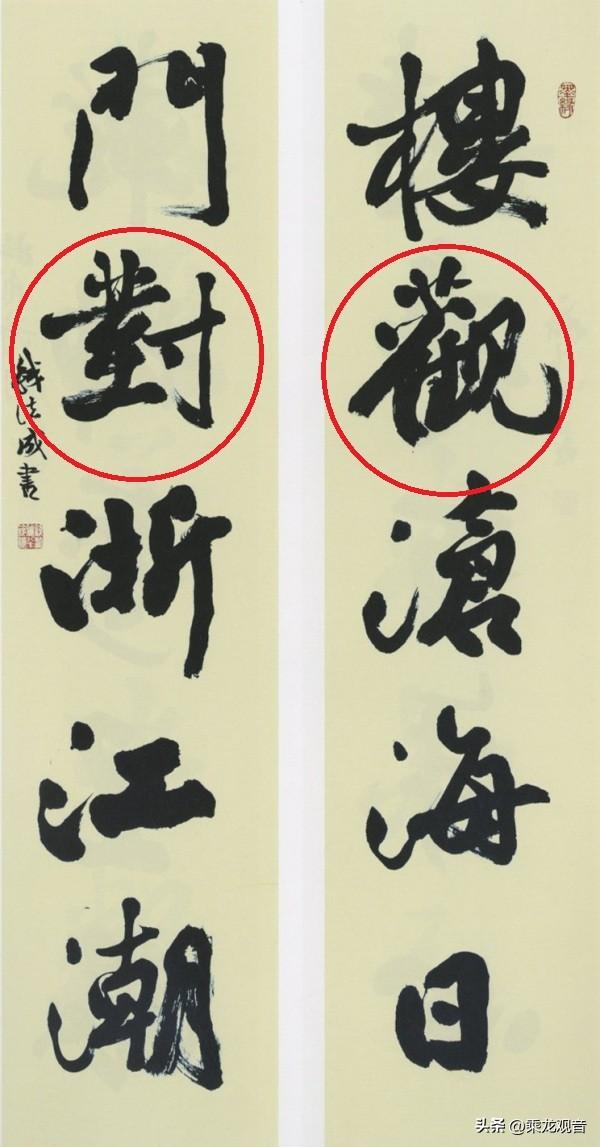 樓觀滄海日
門對浙江潮
錢法成書
头条 @乘龙观音